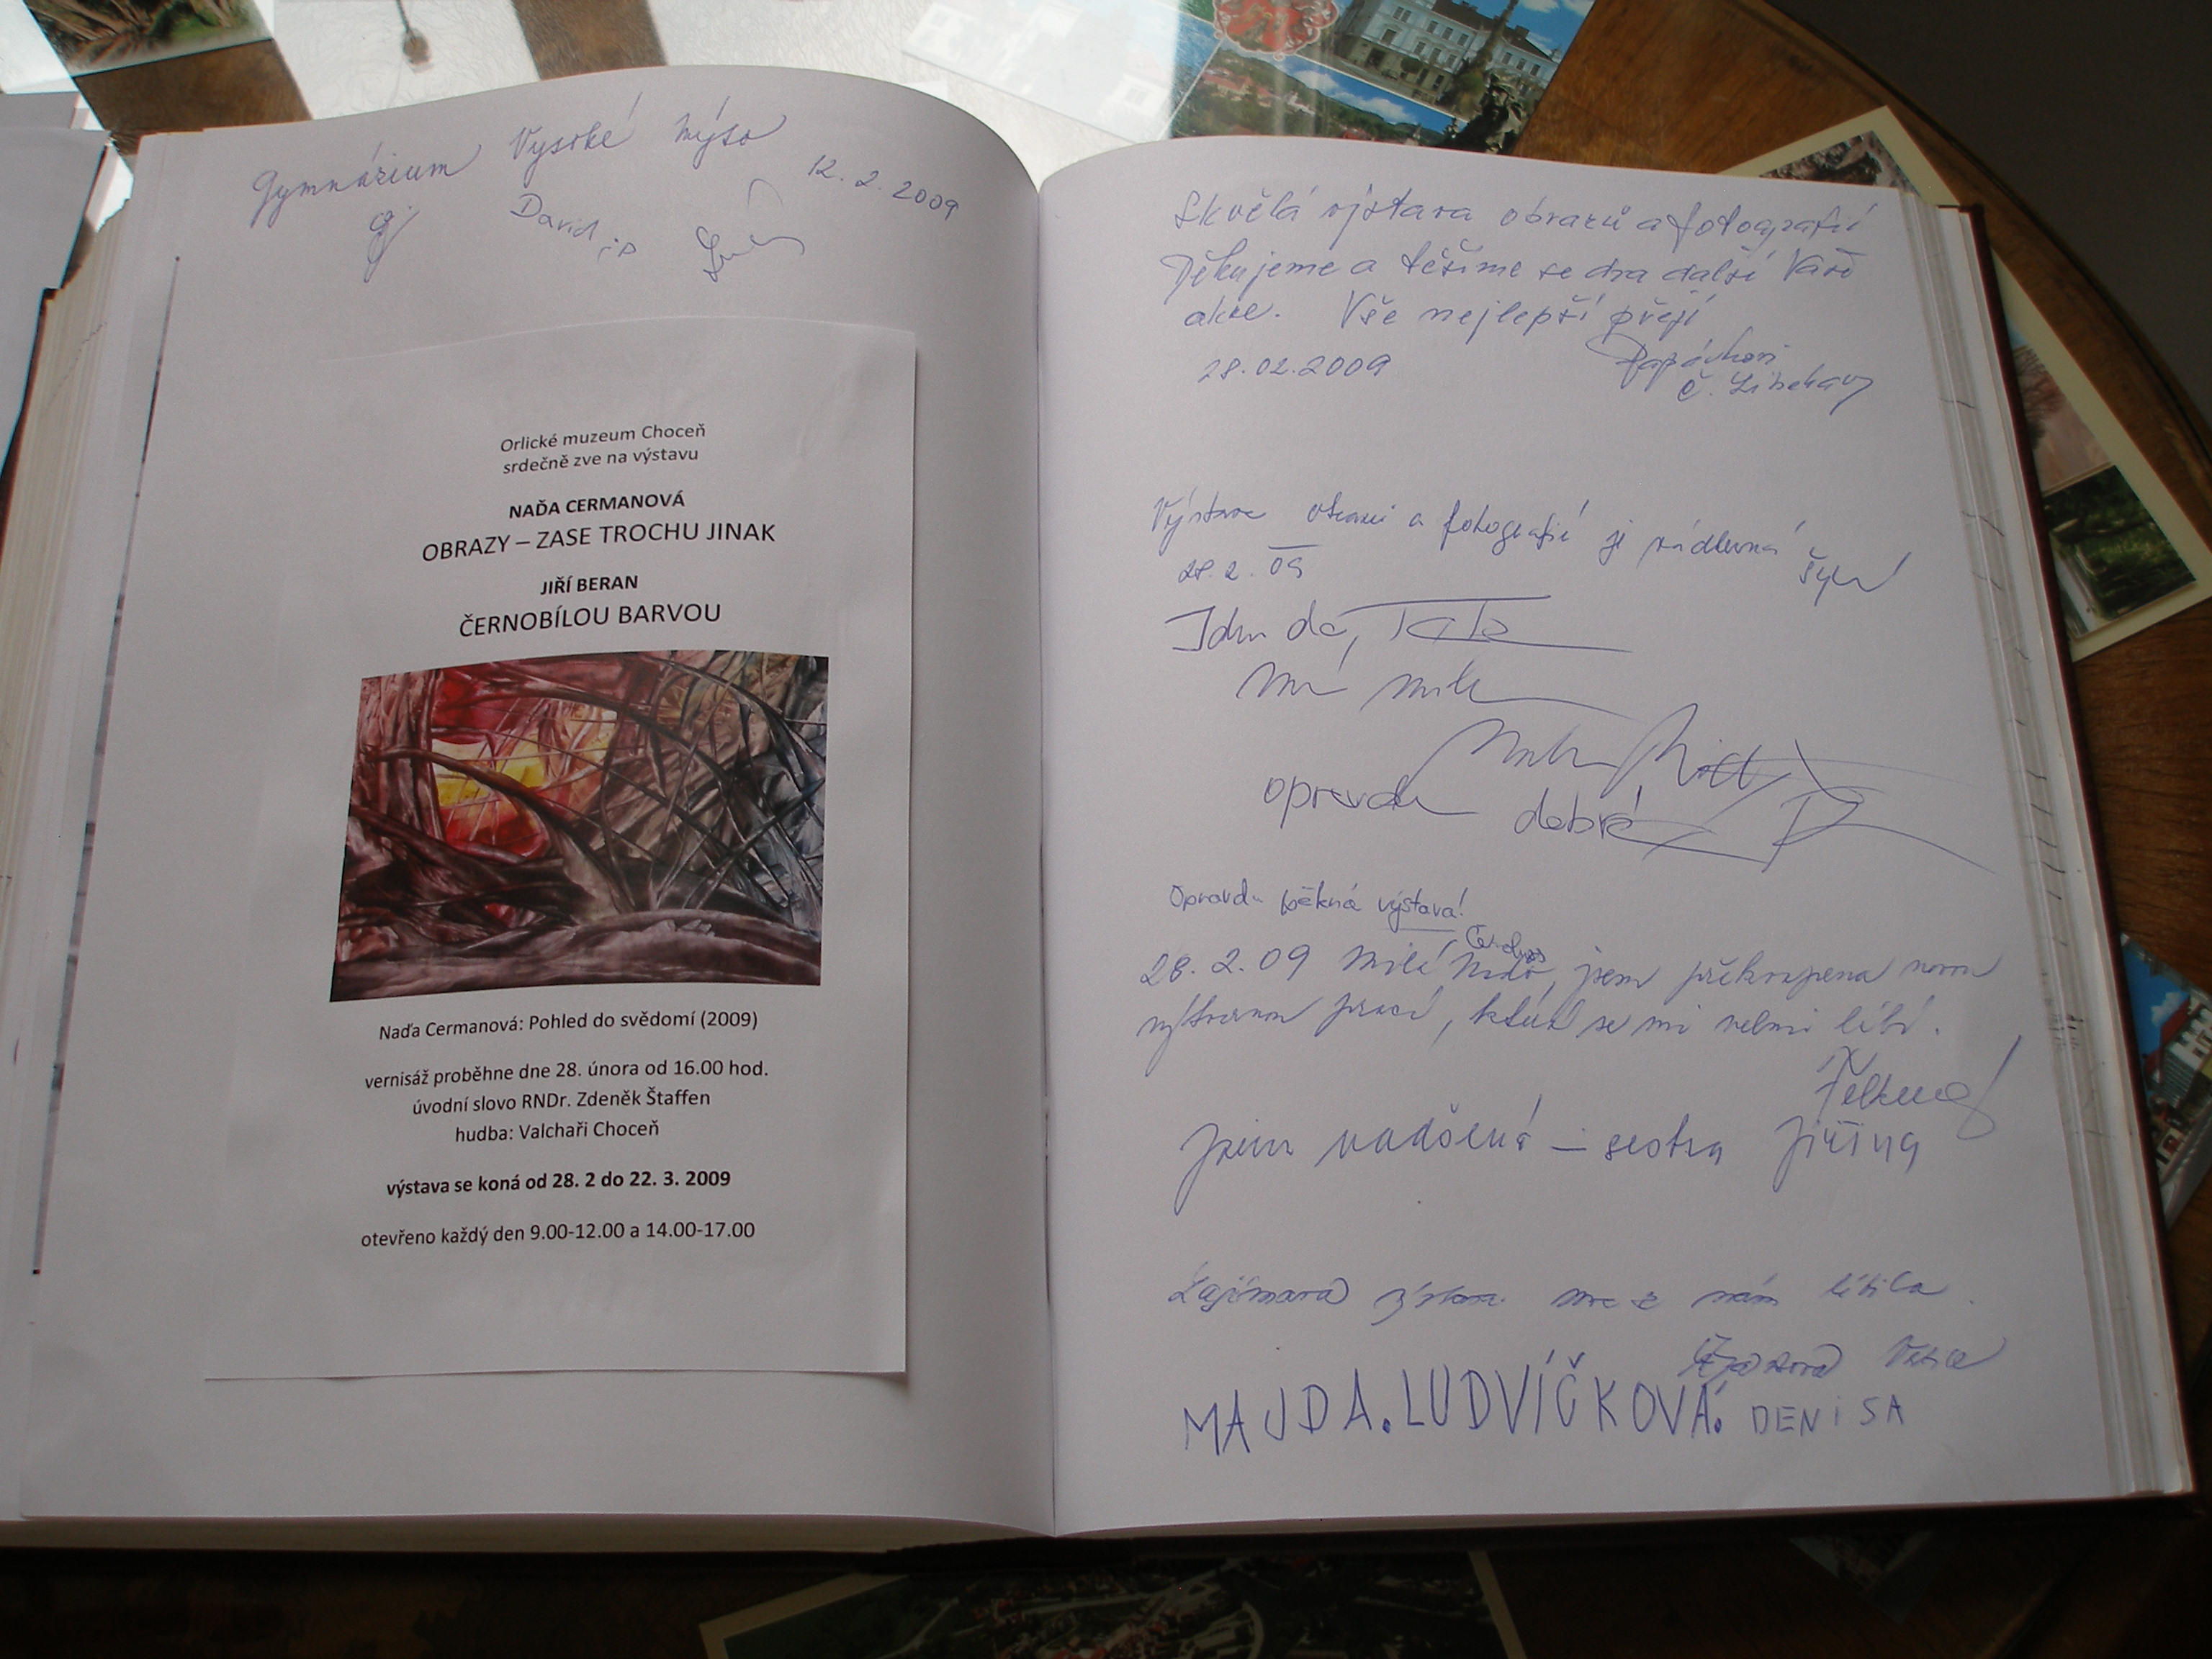 Gymnázium Vysoké Mýto
12. 2. 2009
David
Orlické muzeum Choceň
srdečně zve na výstavu
NAĎA CERMANOVÁ
OBRAZY – ZASE TROCHU JINAK
JIŘÍ BERAN
ČERNOBÍLOU BARVOU
Naďa Cermanová: Pohled do svědomí (2009)
vernisáž proběhne dne 28. února od 16.00 hod.
úvodní slovo RNDr. Zdeněk Štaffen
hudba: Valchaři Choceň
výstava se koná od 28. 2 do 22. 3. 2009
otevřeno každý den 9.00-12.00 a 14.00-17.00
Skvělá výstava obrazů a fotografií
Děkujeme a těšíme se na další Vaše
akce. Vše nejlepší přejí
28.02.2009
Výstava obrazů a fotografií je nádherná
28. 2. 09
opravdu dobré
Opravdu pěkná výstava!
28. 2. 09 Milá Naďo, jsem překvapena novou
výtvarnou prací, která se mi velmi líbí.
Jsem nadšená – sestra Jiřina
Zajímavá výstava nám líbila
MAJDA. LUDVÍČKOVÁ. DENiSA